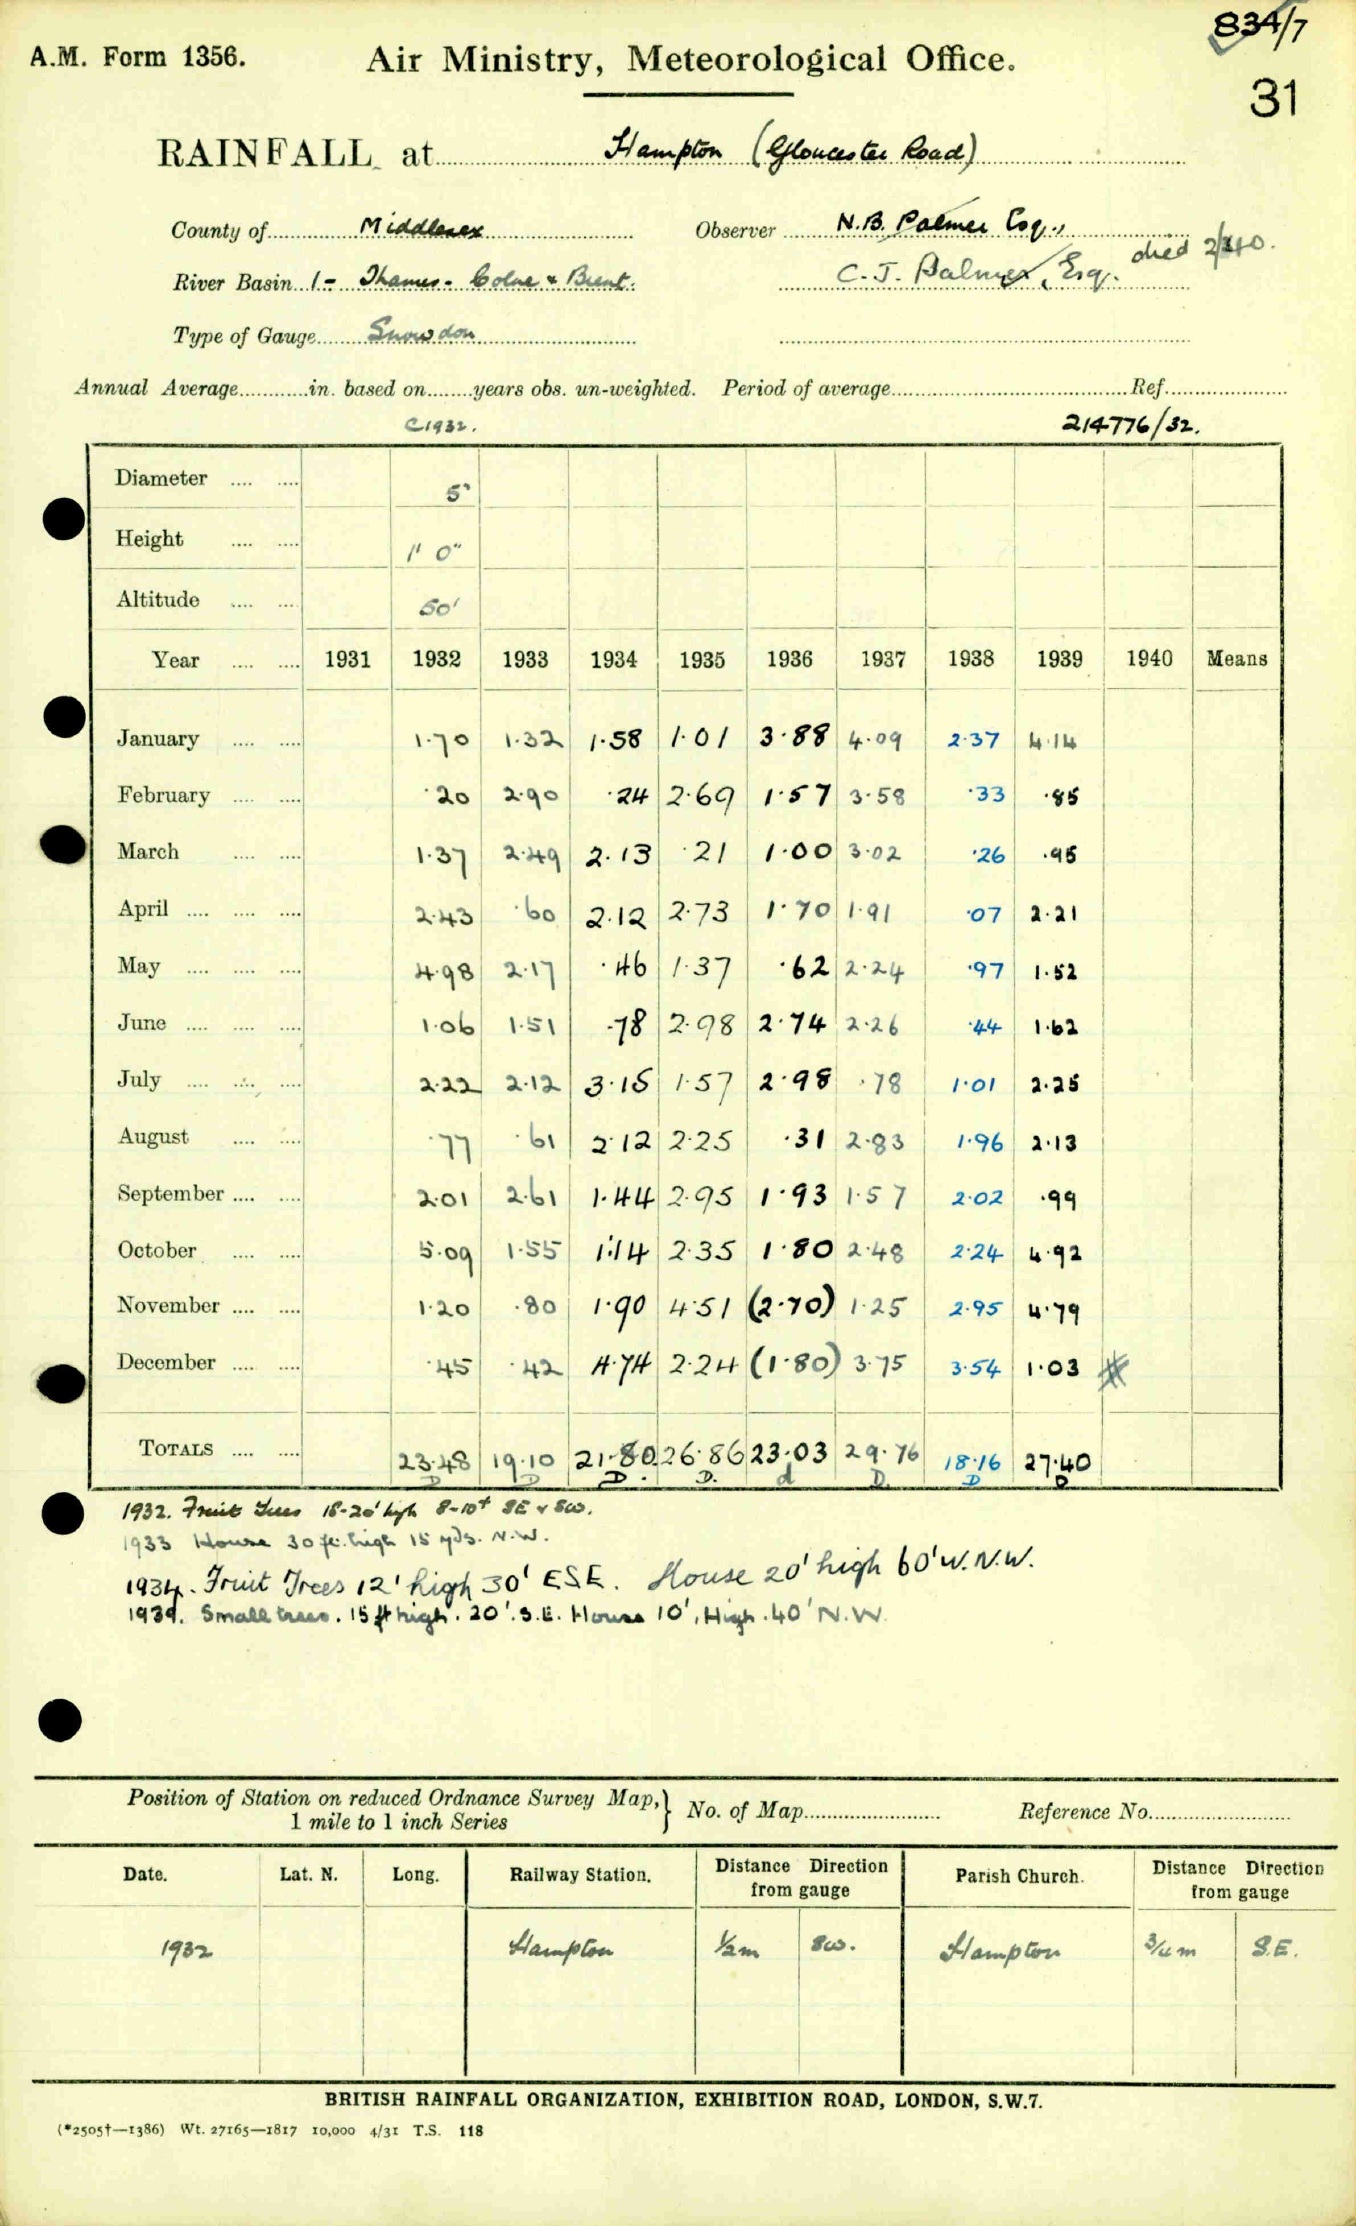 834/7
A.M. Form 1356.
Air Ministry, Meteorological Office.
31
RAINFALL at Hampton (Gloucester Road)
County of Middlesex Observer N.B. Palmer Esq.,
River Basin 1 - Thames - Colne & Brent. C. J. Palmer, Esq. died
Type of Gauge Snowdon
Annual Average............in. based on.........years obs. un-weighted. Period of average.......... Ref..........
C1932. 214776/32.
Diameter .... .... 5"
Height .... .... 1' 0"
Altitude .... .... 50'
Year .... .... 1931 1932 1933 1934 1935 1936 1937 1938 1939 1940 Means
January .... .... 1.70 1.32 1.58 1.01 3.88 4.09 2.37 4.14
February .... .... .20 2.90 .24 2.69 1.57 3.58 .33 .85
March .... .... 1.37 2.49 2.13 .21 1.00 3.02 .26 .95
April .... .... .... 2.43 .60 2.12 2.73 1.70 1.91 .07 2.21
May .... .... .... 4.98 2.17 .46 1.37 .62 2.24 .97 1.52
June .... .... .... 1.06 1.51 .78 2.98 2.74 2.26 .44 1.62
July .... .... .... 2.22 2.12 3.15 1.57 2.98 .78 1.01 2.25
August .... .... .77 .61 2.12 2.25 .31 2.83 1.96 2.13
September .... .... 2.01 2.61 1.44 2.95 1.93 1.57 2.02 .99
October .... .... 5.09 1.55 1.14 2.35 1.80 2.48 2.24 4.92
November .... .... 1.20 .80 1.90 4.51 (2.70) 1.25 2.95 4.79
December .... .... .45 .42 4.74 2.24 (1.80) 3.75 3.54 1.03
TOTALS .... .... 23.48 19.10 21.80 26.86 23.03 29.76 18.16 27.40
D D D. D. d D D D
1932. Fruit Trees 18-20' high 8-10' SE & SW.
1933 House 30 ft. high 15 yds. N.W.
1934. Fruit Trees 12' high 30' ESE. House 20' high 60' W.N.W.
1939. Small trees. 15 ft high. 20'. S.E. House 10', High. 40' N.W.
Position of Station on reduced Ordnance Survey Map, } No. of Map.......... Reference No..........
1 mile to 1 inch Series
Date. Lat. N. Long. Railway Station. Distance Direction from gauge Parish Church. Distance Direction from gauge
1932 Hampton ½m SW. Hampton ¾m S.E.
BRITISH RAINFALL ORGANIZATION, EXHIBITION ROAD, LONDON, S.W.7.
(*2505†—1386) Wt. 27165—1817 10,000 4/31 T.S. 118